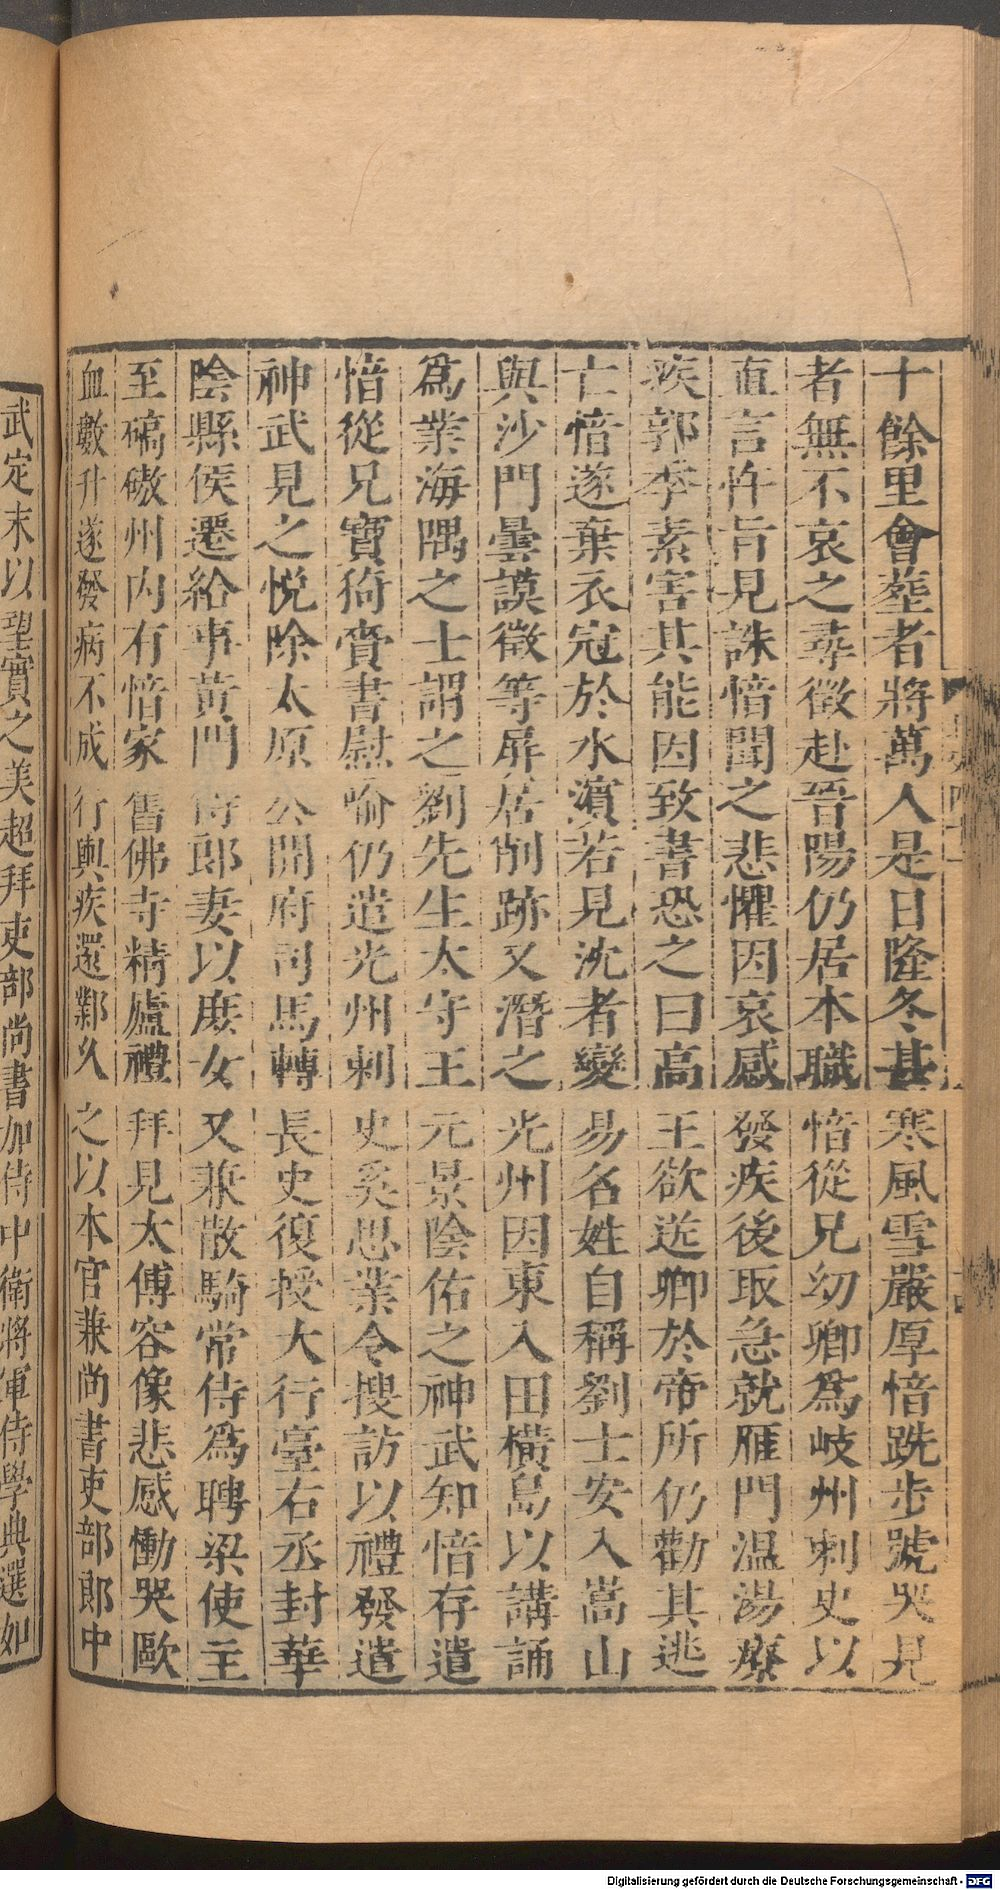 十餘里會葬者將萬人是日隆冬甚寒風雪嚴厚愔跣步號哭見
者無不哀之尋徵赴晉陽仍居本職愔從兄幼卿爲岐州刺史以
直言忤旨見誅愔聞之悲懼因哀感發疾後取急就雁門温湯療
疾郭季素害其能因致書恐之曰高王欲送卿於帝所仍勸其逃
亡愔遂棄衣冠於水濵若見沈者變易名姓自稱劉士安入嵩山
與沙門曇謨徵等屏居削跡又潛之光州因東入田橫島以講誦
爲業海隅之士謂之劉先生太守王元景陰佑之神武知愔存遣
愔從兄寶猗賫書慰喻仍遣光州刺史奚思業令搜訪以禮發遣
神武見之悦除太原公開府司馬轉長史復授大行臺右丞封華
陰縣侯遷給事黃門侍郎妻以庶女又兼散騎常侍爲聘梁使主
至碻磝州内有愔家舊佛寺精廬禮拜見太傅容像悲感慟哭歐
血數升遂發病不成行輿疾還鄴久之以本官兼尚書吏部郎中
武定末以望實之美超拜吏部尚書加侍中衛將軍侍學典選如
Digitalisierung gefördert durch die Deutsche Forschungsgemeinschaft - DFG